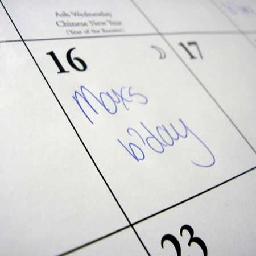 Ash Wednesday
Chinese New Year
(Year of the Rooster)
16
17
Max's
b'day
23